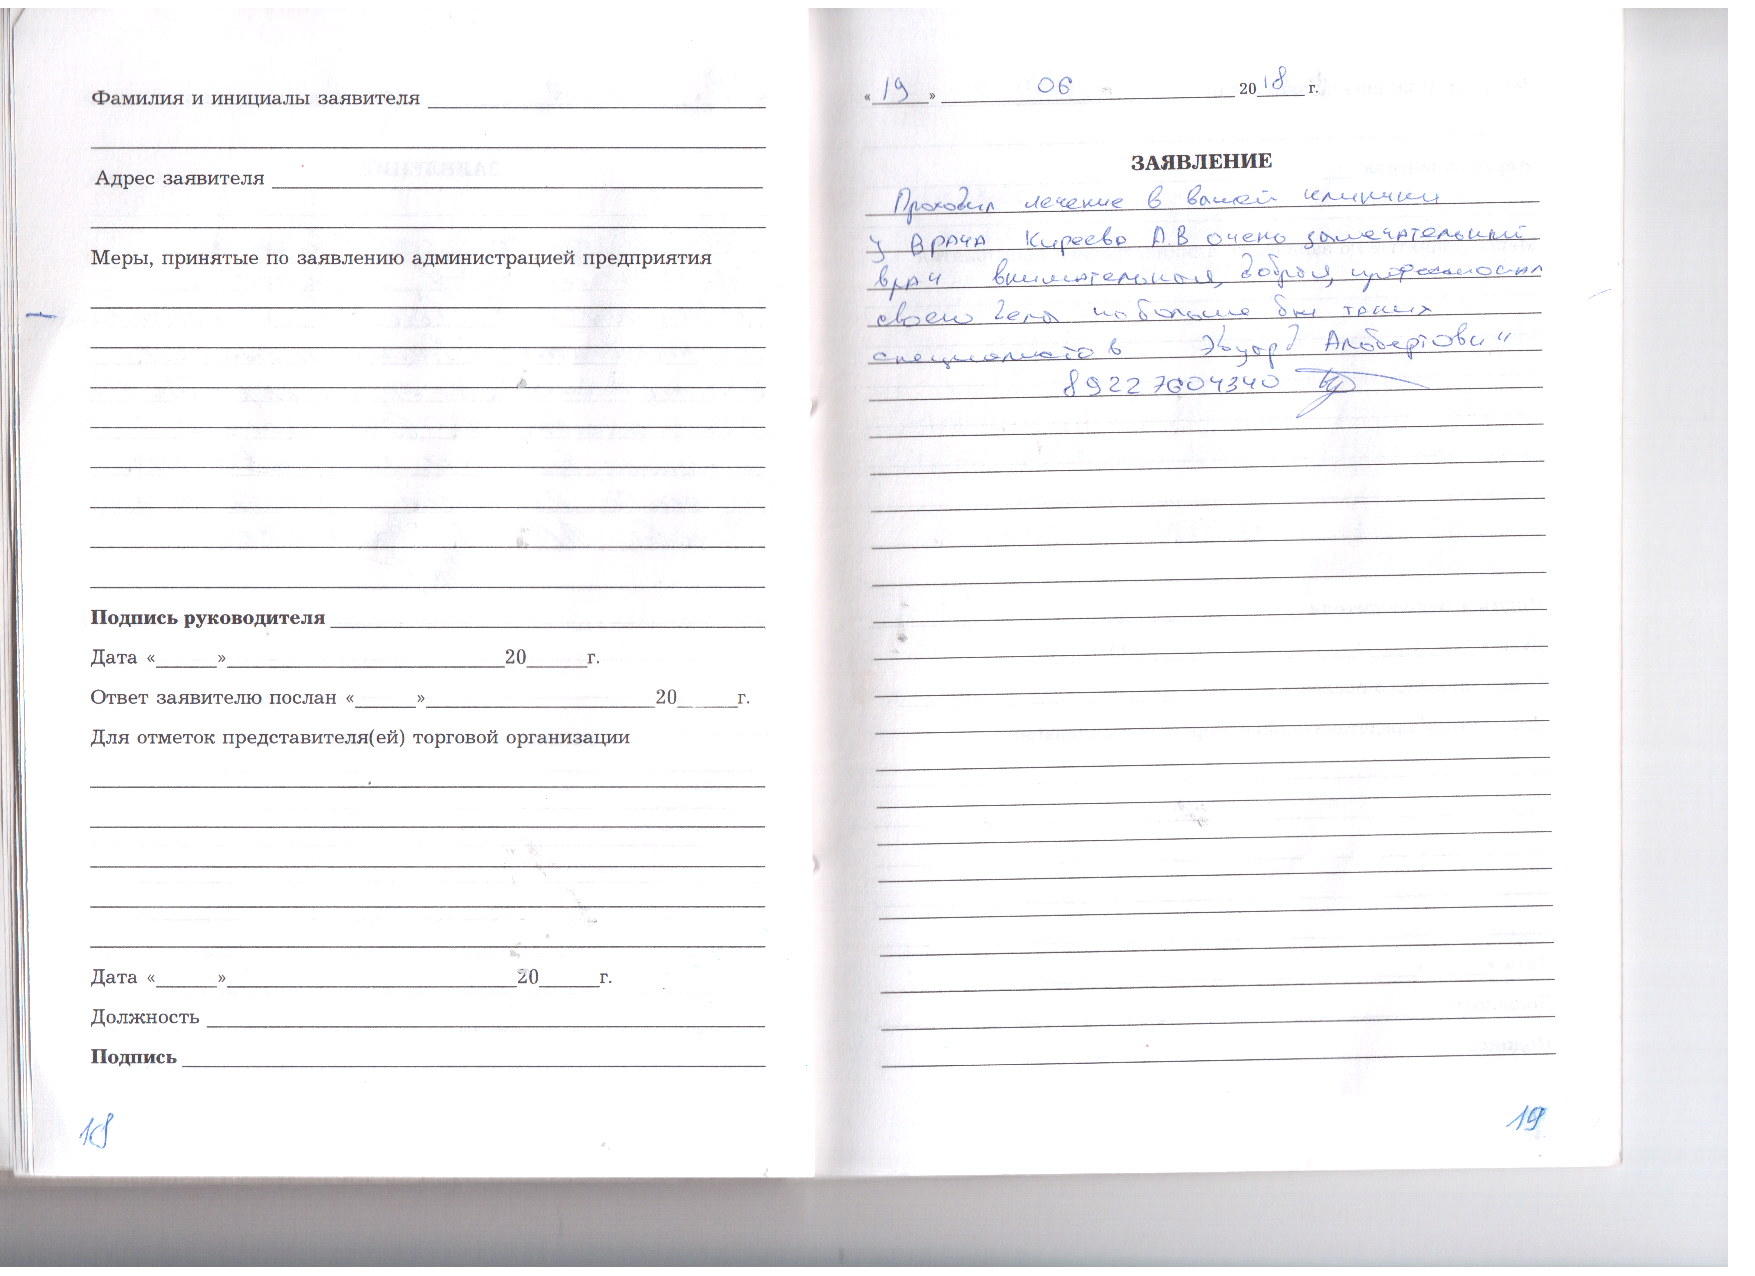 Фамилия и инициалы заявителя
Адрес заявителя
Меры, принятые по заявлению администрацией предприятия
Подпись руководителя
Дата «______»____________________20______г.
Ответ заявителю послан «______»____________________20______г.
Для отметок представителя(ей) торговой организации
Дата «______»____________________20______г.
Должность
Подпись
18
«19» 06 2018 г.
ЗАЯВЛЕНИЕ
Проходил лечение в вашей клиники
у врача Киреева А.В очень замечательный
врач внимательный, добрый,
своего дела побольше бы таких
специалистов Эдуард Альбертович
89227604340
19